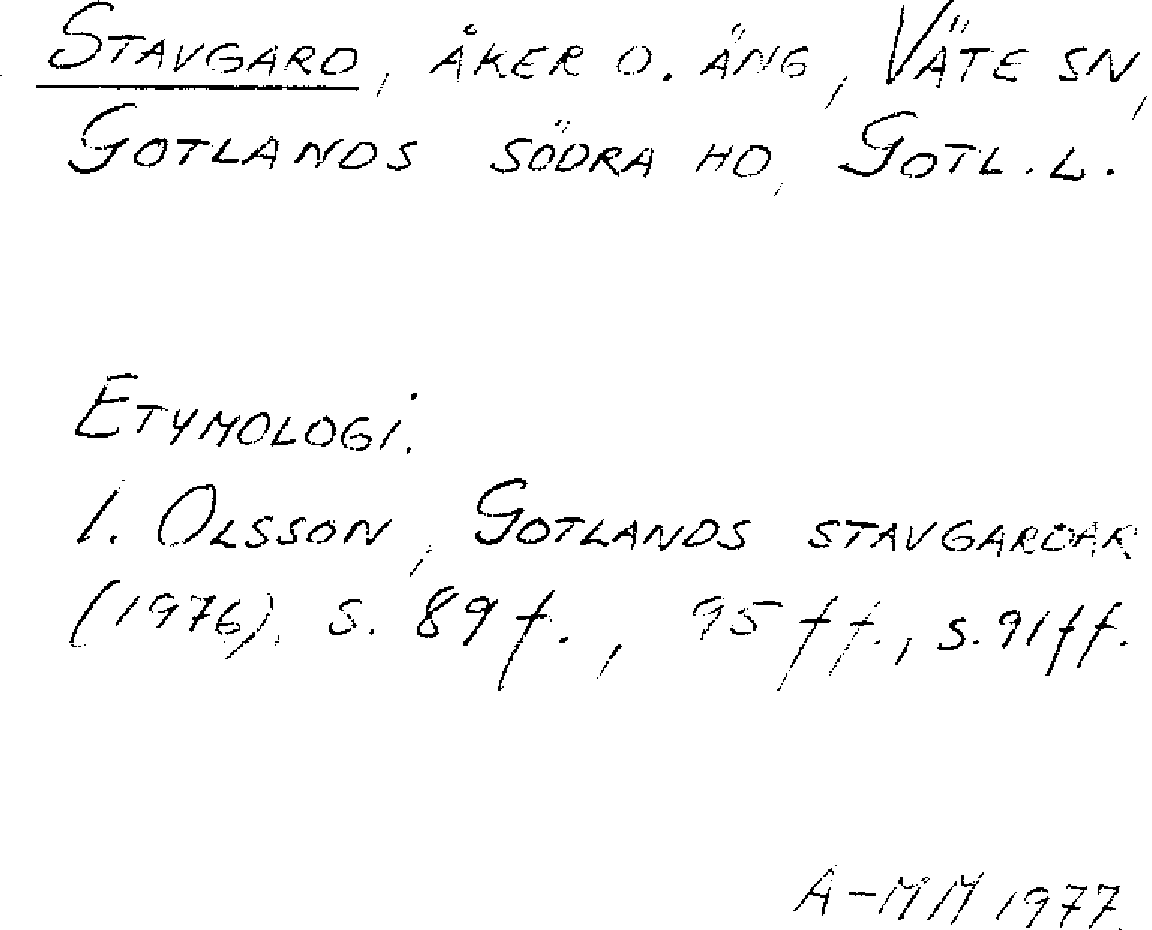 Stavgard, åker o. äng, Väte sn,
Gotlands södra hd, Gotl. l.
Etymologi.
I. Olsson, Gotlands stavgardar
(1976), s. 89 f., 95 ff., s. 91 ff.
A-MM 1977.